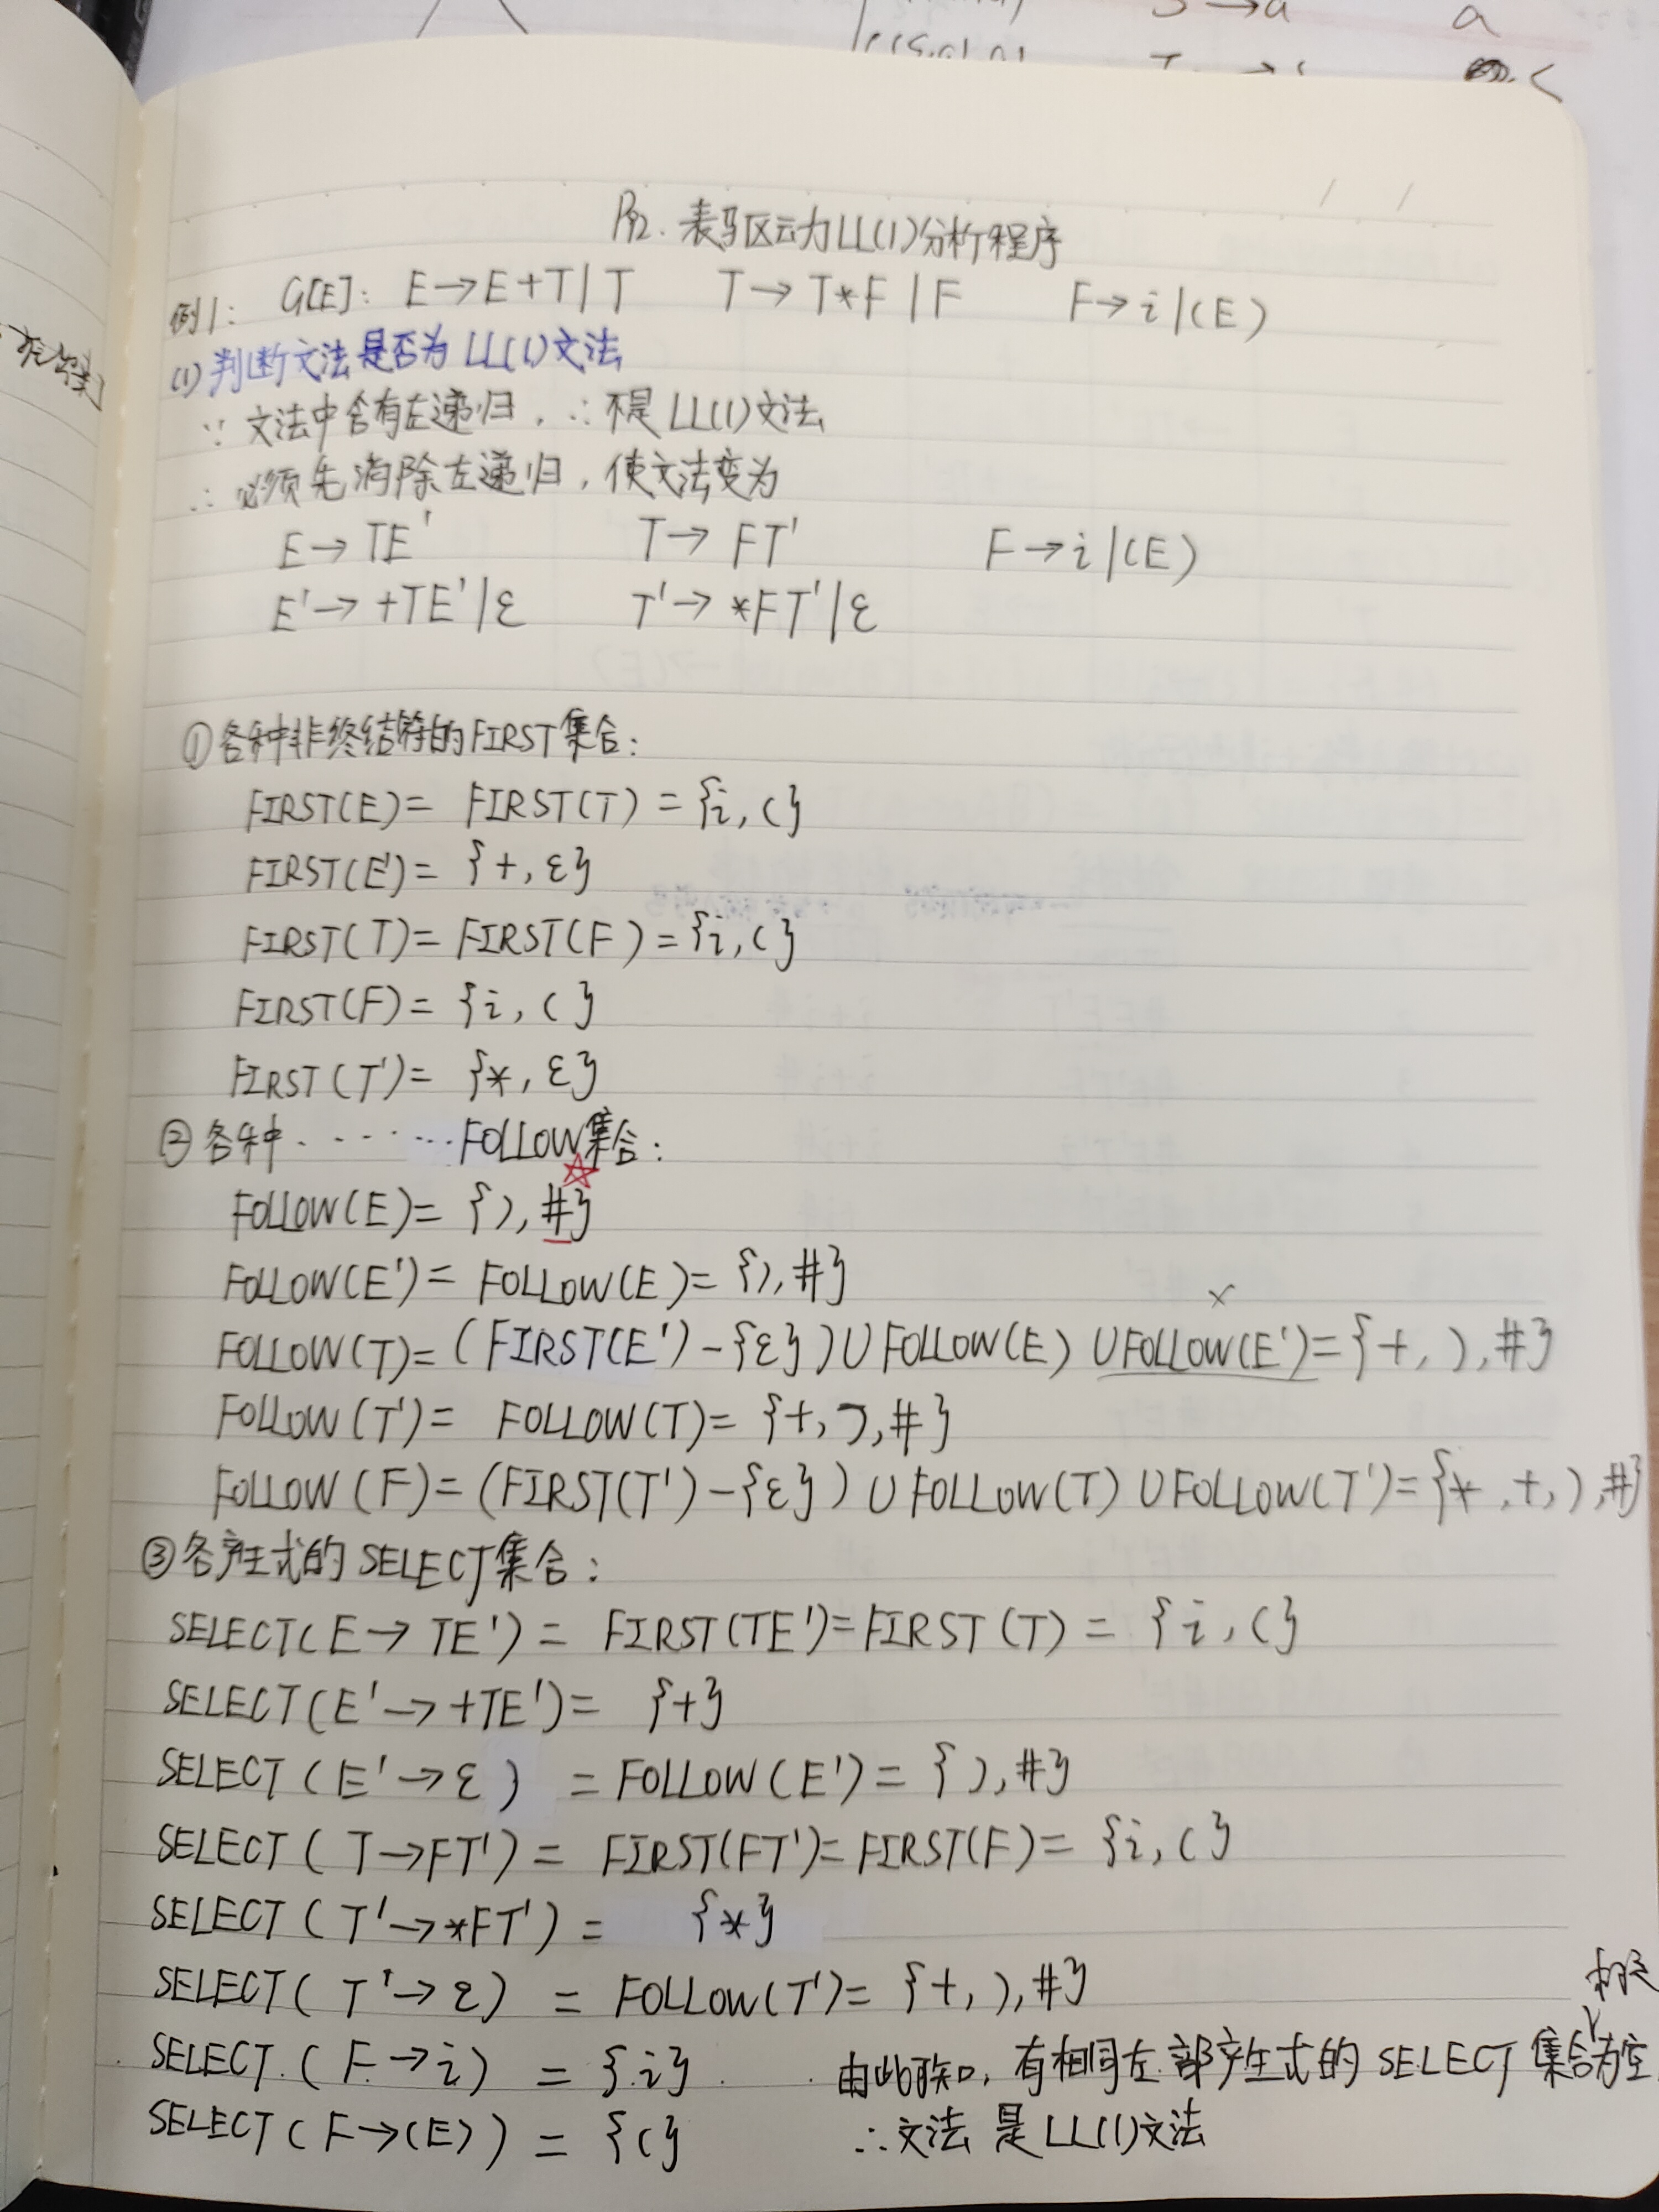 S→a a
P92. 表驱动LL(1)分析程序
例1: G[E]: E→E+T|T T→T*F|F F→i|(E)
(1)判断文法是否为LL(1)文法
∵ 文法中含有左递归, ∴不是LL(1)文法
∴ 必须先消除左递归, 使文法变为
E→TE' T→FT' F→i|(E)
E'→+TE'|ε T'→*FT'|ε
①各种非终结符的FIRST集合:
FIRST(E)= FIRST(T)={i,(}
FIRST(E')= {+,ε}
FIRST(T)=FIRST(F)={i,(}
FIRST(F)= {i,(}
FIRST(T')= {*,ε}
②各种·······FOLLOW集合:
☆
FOLLOW(E)= {),#}
FOLLOW(E')= FOLLOW(E)= {),#}
×
FOLLOW(T)=(FIRST(E')-{ε})∪FOLLOW(E)∪FOLLOW(E')={+,),#}
FOLLOW(T')= FOLLOW(T)= {+,),#}
FOLLOW(F)=(FIRST(T')-{ε})∪FOLLOW(T)∪FOLLOW(T')={*,+,),#}
③各产生式的SELECT集合:
SELECT(E→TE')= FIRST(TE')=FIRST(T)= {i,(}
SELECT(E'→+TE')= {+}
SELECT(E'→ε) =FOLLOW(E')= {),#}
SELECT(T→FT')= FIRST(FT')=FIRST(F)= {i,(}
SELECT(T'→*FT')= {*}
SELECT(T'→ε) = FOLLOW(T')= {+,),#}
SELECT(F→i) = {i} 由此可知, 有相同左部产生式的SELECT集合为空
SELECT(F→(E)) = {(} ∴文法是LL(1)文法